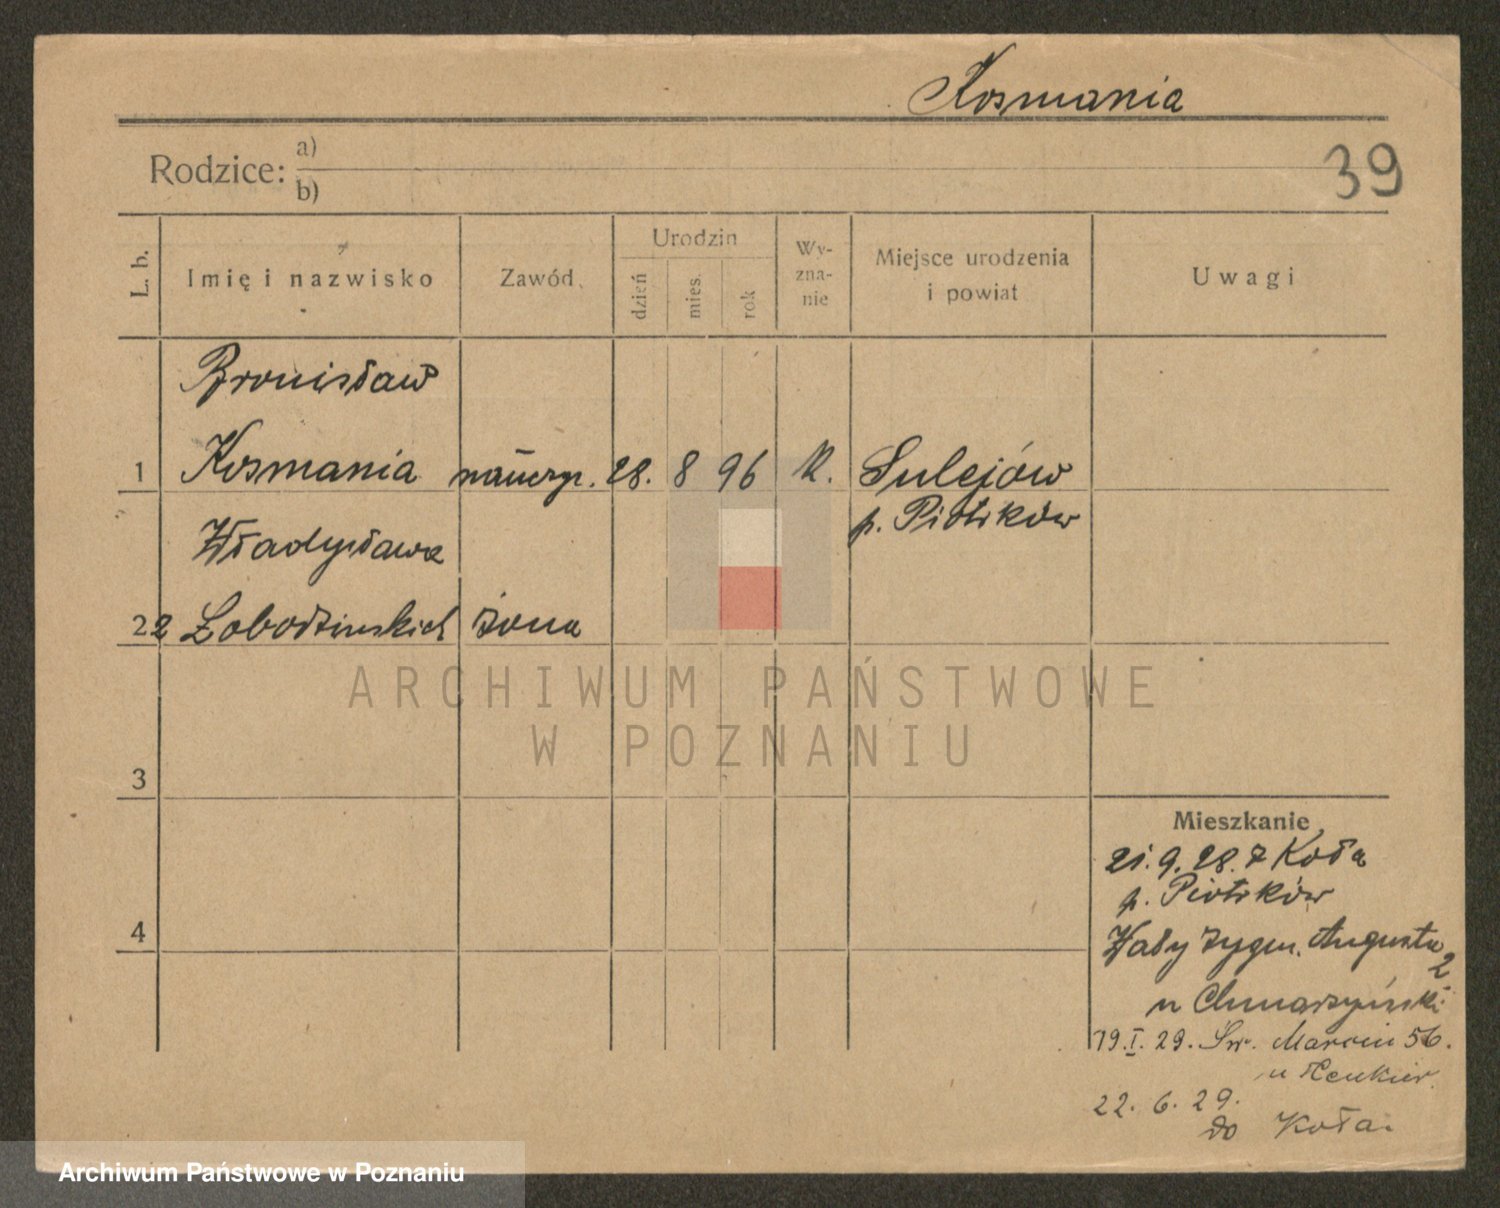 Kosmania
Rodzice: a)
b)
39
L. b.
Imię i nazwisko
Zawód
Urodzin
dzień
mies.
rok
Wy-
zna-
nie
Miejsce urodzenia
i powiat
Uwagi
Bronisław
1 Kosmania nauczyc. 28. 8 96 k. Sulejów
p. Piotrków
Władysława
2 2 Łobodzińskich żona
ARCHIWUM PAŃSTWOWE
W POZNANIU
3
Mieszkanie
21. 9. 28. z Koła
p. Piotrków
4
Wały Zygm. Augusta
2
u Chmarzyński
19. I. 29. Św. Marcin 56.
u
22. 6. 29.
do Koła.
Archiwum Państwowe w Poznaniu